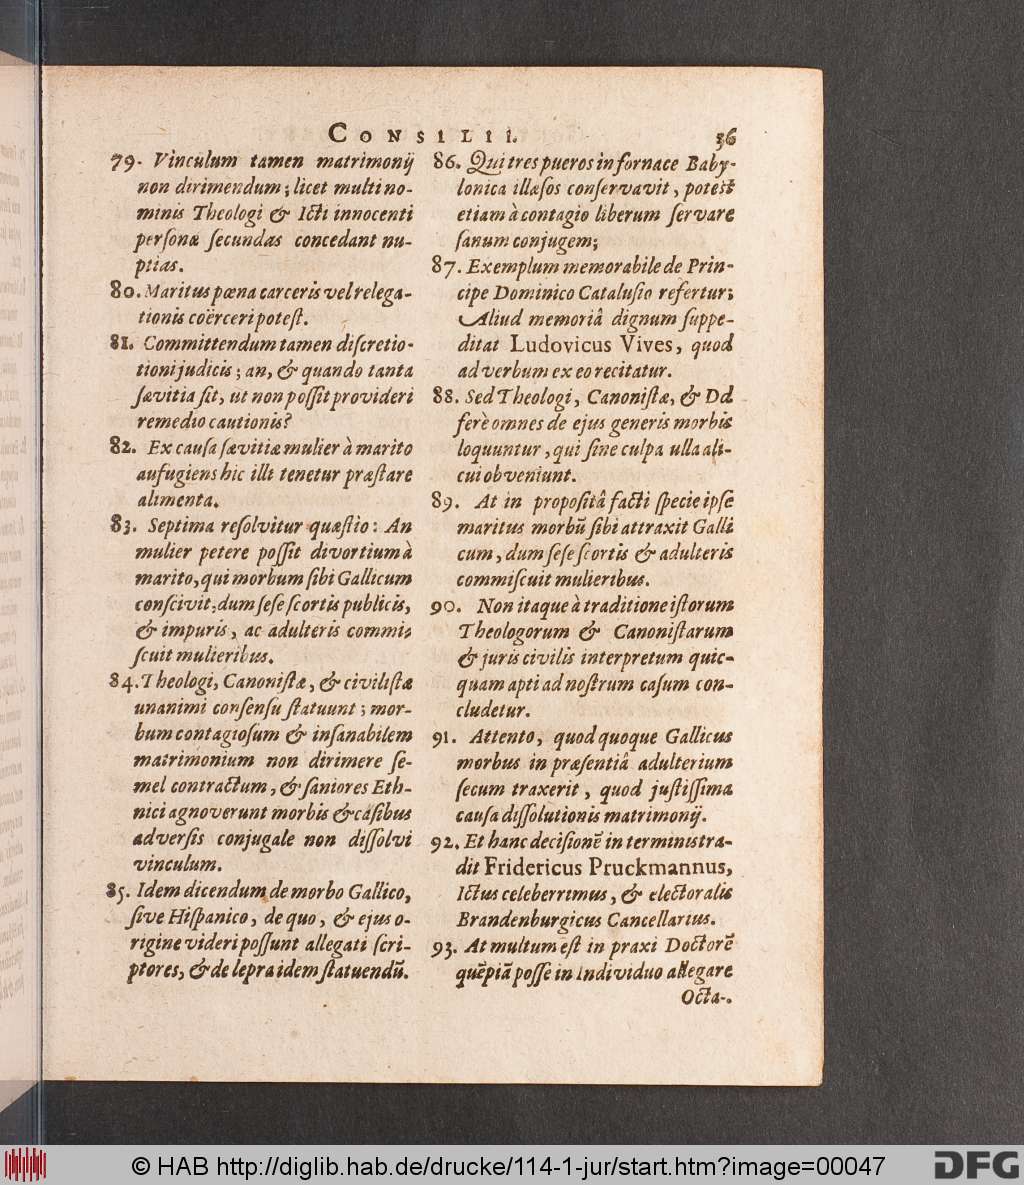 CONSILII.
36
79. Vinculum tamen matrimonij
non dirimendum; licet multi no-
minis Theologi & Icti innocenti
personæ secundas concedant nu-
ptias.
80. Maritus pœna carceris vel relega-
tionis coërceri potest.
81. Committendum tamen discretio-
tioni judicis; an, & quando tanta
sævitia sit, ut non possit provideri
remedio cautionis?
82. Ex causa sævitiæ mulier à marito
aufugiens hic illi tenetur præstare
alimenta.
83. Septima resolvitur quæstio: An
mulier petere possit divortium à
marito, qui morbum sibi Gallicum
conscivit, dum sese scortis publicis,
& impuris, ac adulteris commi-
scuit mulieribus.
84. Theologi, Canonistæ, & civilistæ
unanimi consensu statuunt; mor-
bum contagiosum & insanabilem
matrimonium non dirimere se-
mel contractum, & saniores Eth-
nici agnoverunt morbis & casibus
adversis conjugale non dissolvi
vinculum.
85. Idem dicendum de morbo Gallico,
sive Hispanico, de quo, & ejus o-
rigine videri possunt allegati scri-
ptores, & de lepra idem statuendũ.
86. Qui tres pueros in fornace Baby-
lonica illæsos conservavit, potest
etiam à contagio liberum servare
sanum conjugem;
87. Exemplum memorabile de Prin-
cipe Dominico Catalusio refertur;
Aliud memoriâ dignum suppe-
ditat Ludovicus Vives, quod
ad verbum ex eo recitatur.
88. Sed Theologi, Canonistæ, & Dd
ferè omnes de ejus generis morbis
loquuntur, qui sine culpa ulla ali-
cui obveniunt.
89. At in propositâ facti specie ipse
maritus morbũ sibi attraxit Galli
cum, dum sese scortis & adulteris
commiscuit mulieribus.
90. Non itaque à traditione istorum
Theologorum & Canonistarum
& juris civilis interpretum quic-
quam apti ad nostrum casum con-
cludetur.
91. Attento, quod quoque Gallicus
morbus in præsentiâ adulterium
secum traxerit, quod justissima
causa dissolutionis matrimonij.
92. Et hanc decisionẽ in terminis tra-
dit Fridericus Pruckmannus,
Ictus celeberrimus, & electoralis
Brandenburgicus Cancellarius.
93. At multum est in praxi Doctorẽ
quẽpiã posse in Individuo allegare
Octa-
© HAB http://diglib.hab.de/drucke/114-1-jur/start.htm?image=00047
DFG